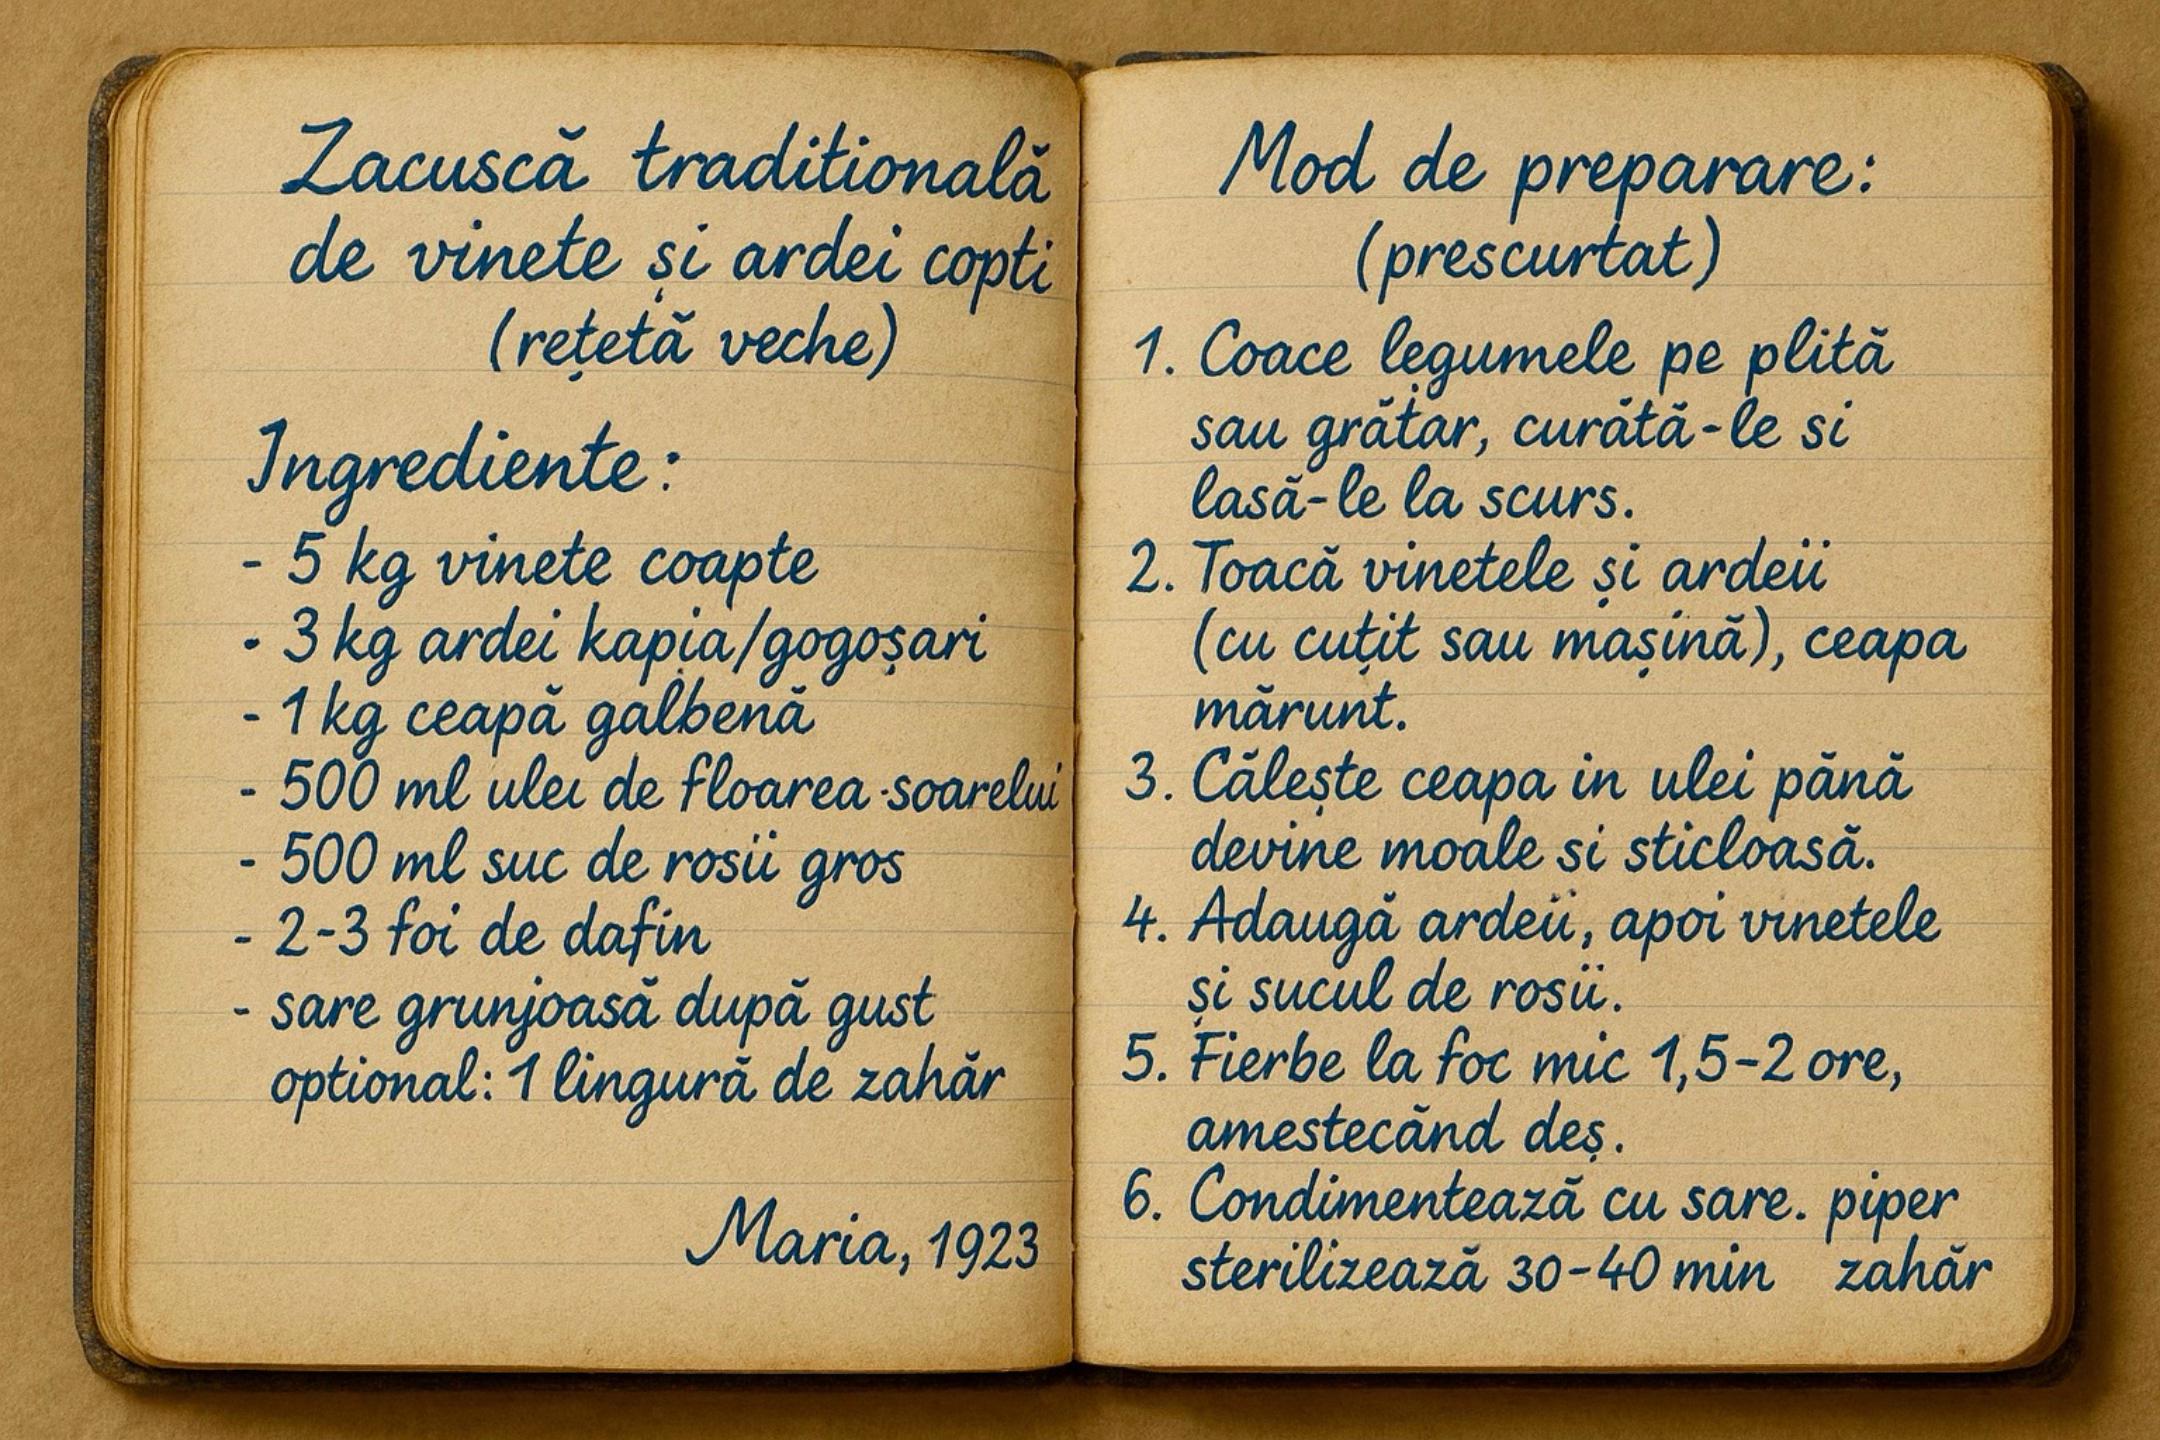 Zacuscă traditională
de vinete și ardei copti
(rețetă veche)
Ingrediente:
- 5 kg vinete coapte
- 3 kg ardei kapia/gogoșari
- 1 kg ceapă galbenă
- 500 ml ulei de floarea-soarelui
- 500 ml suc de rosii gros
- 2-3 foi de dafin
- sare grunjoasă după gust
optional: 1 lingură de zahăr
Maria, 1923
Mod de preparare:
(prescurtat)
1. Coace legumele pe plită
sau grătar, curătă-le si
lasă-le la scurs.
2. Toacă vinetele și ardeii
(cu cuțit sau mașină), ceapa
mărunt.
3. Călește ceapa in ulei pănă
devine moale si sticloasă.
4. Adaugă ardeii, apoi vinetele
și sucul de rosii.
5. Fierbe la foc mic 1,5-2 ore,
amestecănd deș.
6. Condimentează cu sare. piper
sterilizează 30-40 min zahăr